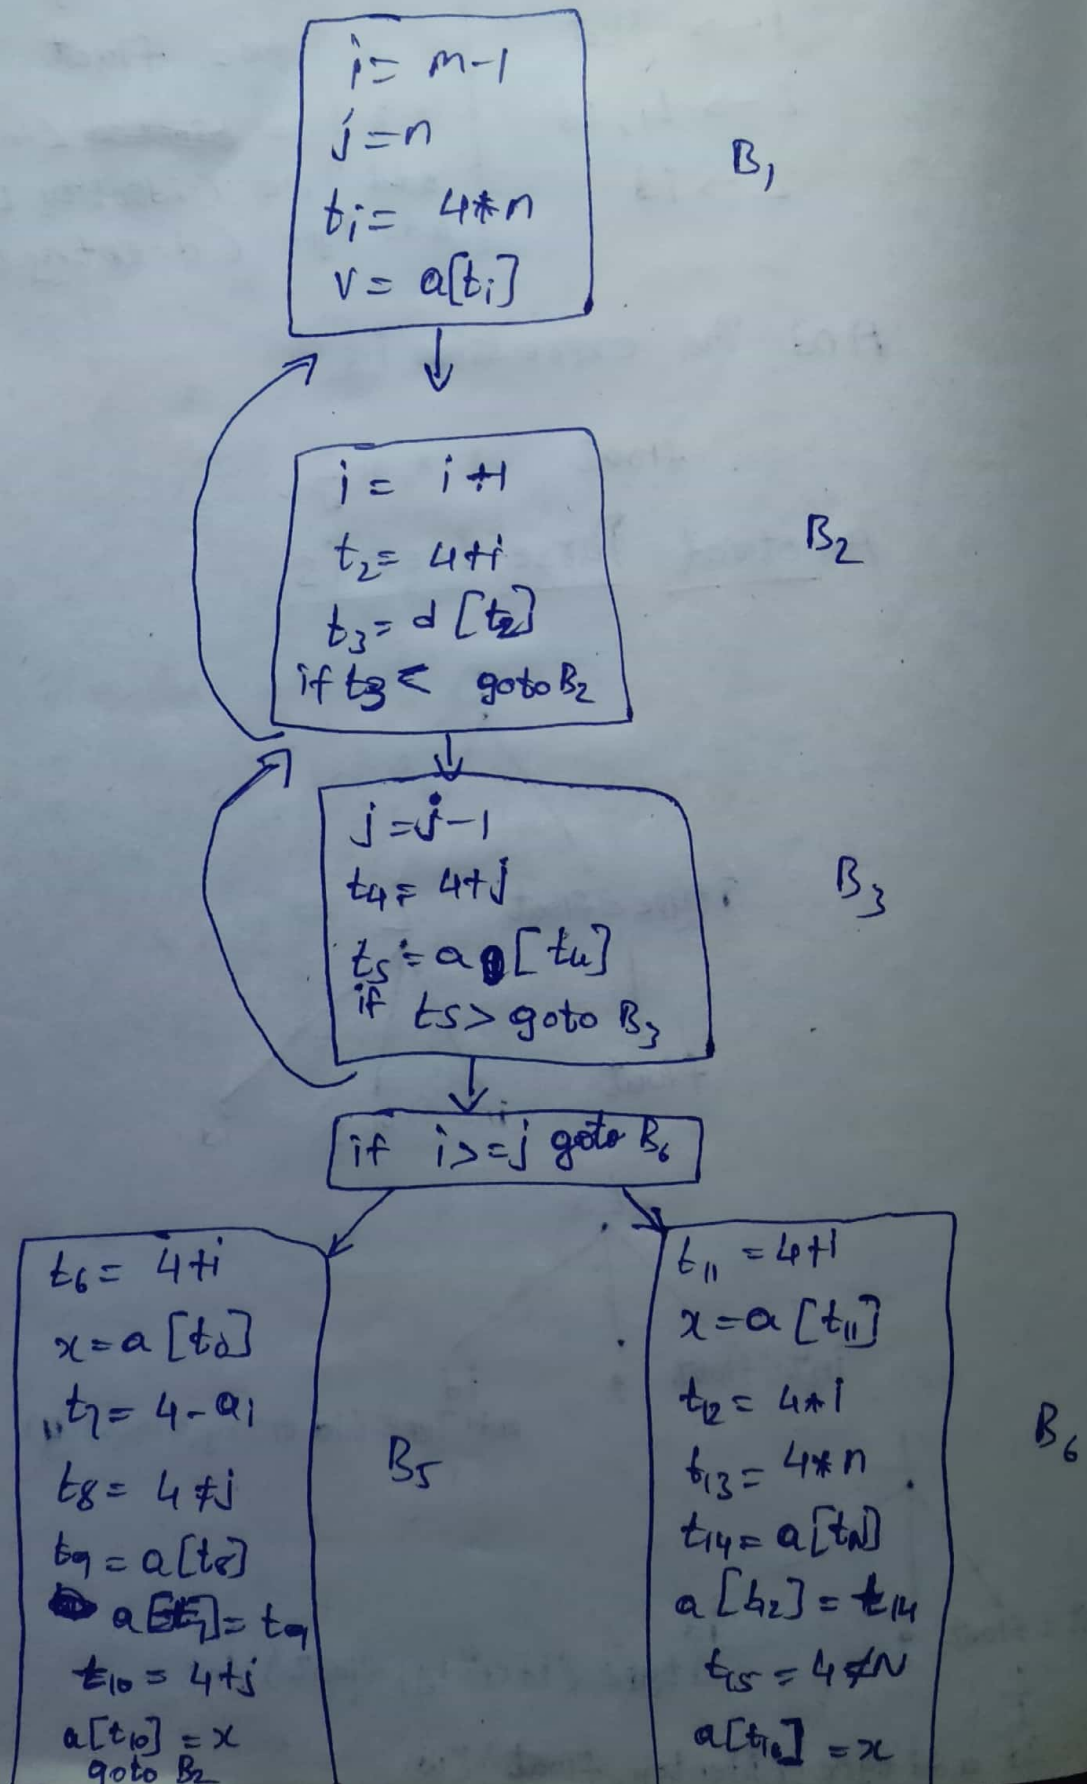 i = m-1
j = n
ti = 4*n
v = a[ti]
B1
i = i+1
t2 = 4+i
t3 = d[t2]
if t3 < goto B2
B2
j = j-1
t4 = 4+j
t5 = a[t4]
if t5 > goto B3
B3
if i >= j goto B6
t6 = 4+i
x = a[t6]
t7 = 4-a1
t8 = 4*j
t9 = a[t8]
a[t7] = t9
t10 = 4+j
a[t10] = x
goto B2
B5
t11 = 4+i
x = a[t11]
t12 = 4*i
t13 = 4*n
t14 = a[tN]
a[t12] = t14
t15 = 4*N
= x
B6